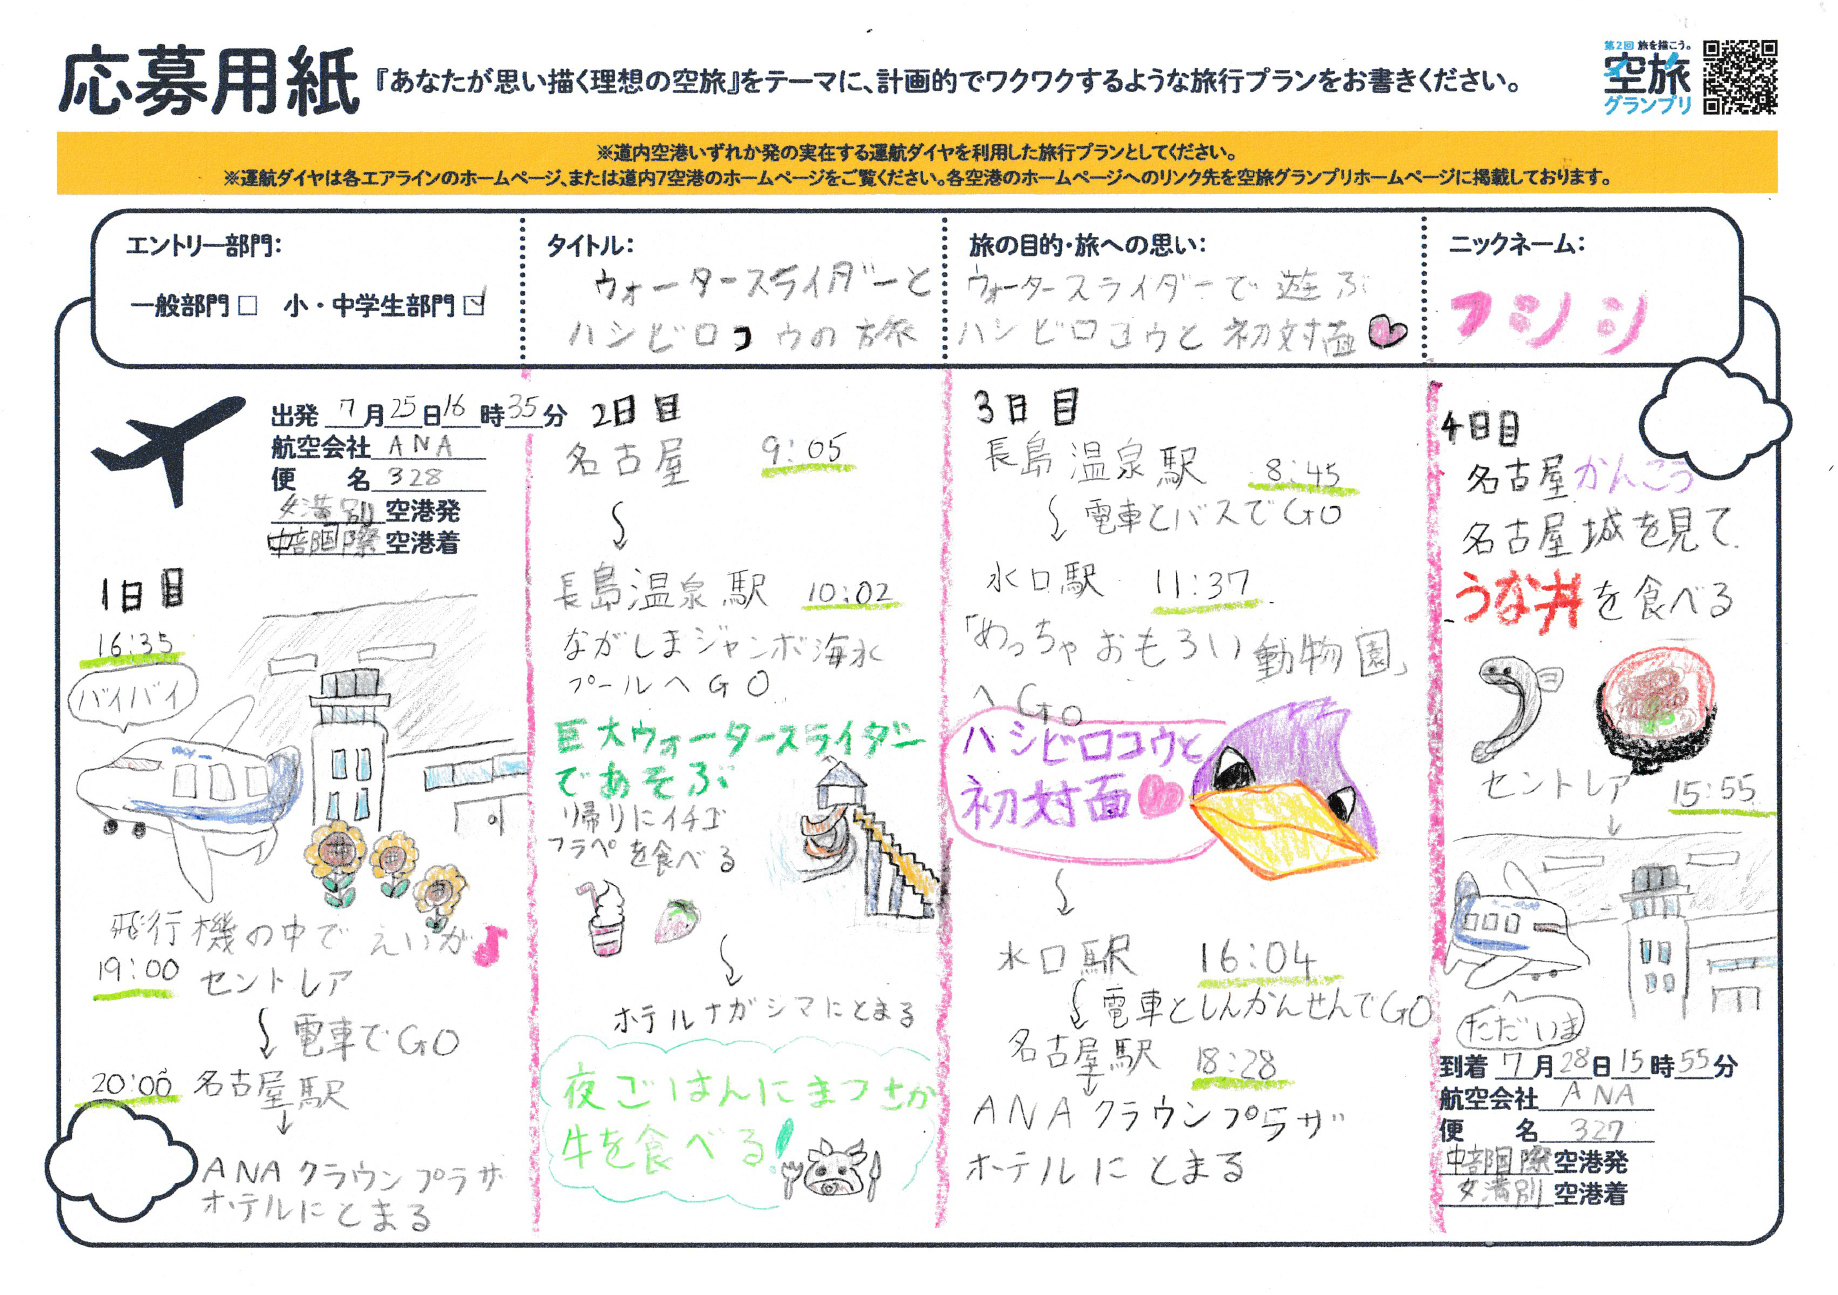 応募用紙
『あなたが思い描く理想の空旅』をテーマに、計画的でワクワクするような旅行プランをお書きください。
第2回 旅を描こう。
空旅
グランプリ
※道内空港いずれか発の実在する運航ダイヤを利用した旅行プランとしてください。
※運航ダイヤは各エアラインのホームページ、または道内7空港のホームページをご覧ください。各空港のホームページへのリンク先を空旅グランプリホームページに掲載しております。
エントリー部門:
一般部門□ 小・中学生部門☑
タイトル:
ウォータースライダーと
ハシビロコウの旅
旅の目的・旅への思い:
ウォータースライダーで遊ぶ
ハシビロコウと初対面
ニックネーム:
フジジ
出発 7月25日16時35分
航空会社 ANA
便 名 328
女満別空港発
中部国際空港着
1日目
16:35
バイバイ
飛行機の中でえいが
19:00 セントレア
電車でGO
20:00 名古屋駅
ANAクラウンプラザ
ホテルにとまる
2日目
名古屋 9:05
長島温泉駅 10:02
ながしまジャンボ海水
プールへGO
巨大ウォータースライダー
であそぶ
帰りにイチゴ
フラペを食べる
ホテルナガシマにとまる
夜ごはんにまつさか
牛を食べる!
3日目
長島温泉駅 8:45
電車とバスでGO
水口駅 11:37
「めっちゃおもろい動物園」
へGO
ハシビロコウと
初対面
水口駅 16:04
電車としんかんせんでGO
名古屋駅 18:28
ANAクラウンプラザ
ホテルにとまる
4日目
名古屋かんこう
名古屋城を見て
うな丼を食べる
セントレア 15:55
ただいま
到着 7月28日15時55分
航空会社 ANA
便 名 327
中部国際空港発
女満別空港着